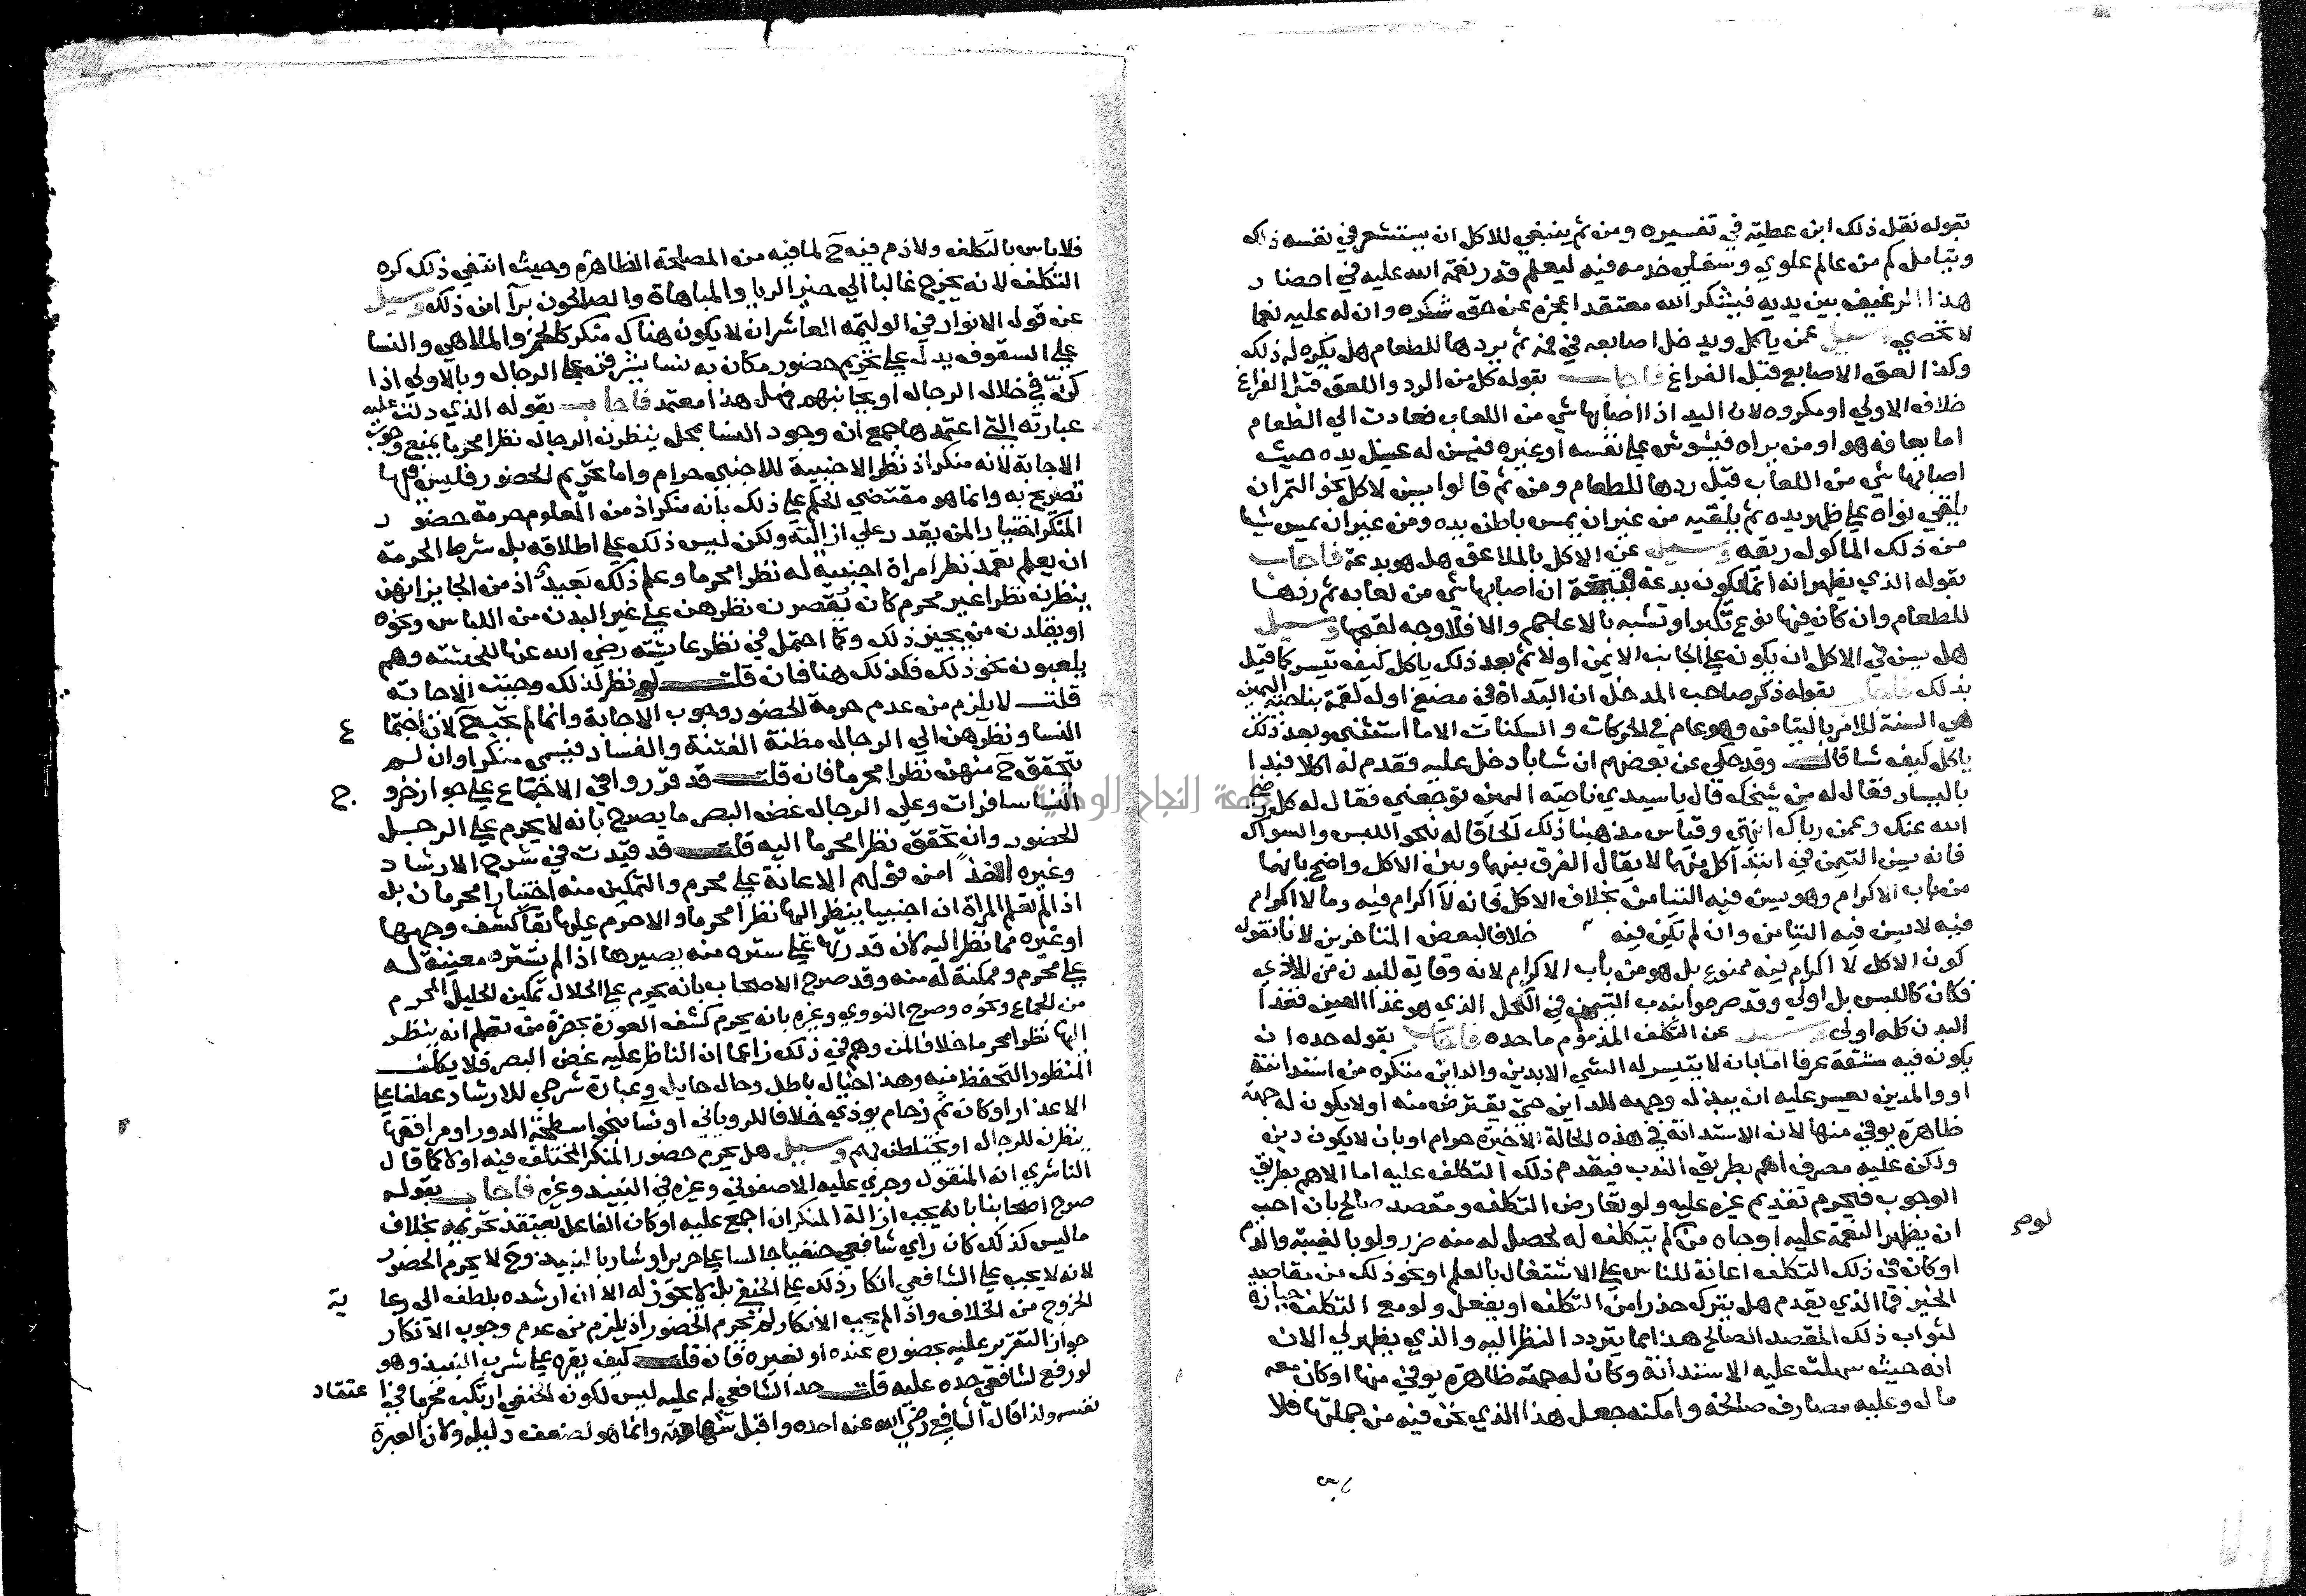 بقوله نقل ذلك ابن عطية في تفسيره ومن ثم ينبغي للاكل ان يستشعر في نفسه ذلك
ويتامل كم من عالم علوي وسفلي خدمه فيه ليعلم قدر نعمة الله عليه في احضار
هذا الرغيف بين يديه فيشكر الله معتقدا عجزه عن حق شكره وان له عليه نعما
لا تحصي وسيل عمن ياكل ويدخل اصابعه في فمه ثم يردها للطعام هل يكره له ذلك
وكذا لعق الاصابع قبل الفراغ فاجاب بقوله كل من الرد واللعق قبل الفراغ
خلاف الاولي او مكروه لان اليد اذا اصابها شي من اللعاب فعادت الي الطعام
اما يعافه هو او من يراه فيشوش على نفسه او غيره فيسن له غسل يده حيث
اصابها شي من اللعاب قبل ردها للطعام ومن ثم قالوا يسن لاكل نحو التمر ان
يلقي نواه على ظهر يده ثم يلقيه من غير ان يمس باطن يده ومن غير ان يمس شيا
من ذلك الماكول ريقه وسيل عن الاكل بالملاعق هل هو بدعة فاجاب
بقوله الذي يظهر انه انما يكون بدعة قبيحة ان اصابها شي من لعابه ثم ردها
للطعام وان كان فيها نوع تكبر او تشبه بالاعاجم والا فلا وجه لقبحها وسيل
هل يسن في الاكل ان يكون على الجانب الايمن اولا ثم بعد ذلك ياكل كيف تيسر كما قيل
بذلك فاجاب بقوله ذكر صاحب المدخل ان البداة في مضغ اول لقمة بناحية اليمين
هي السنة للامر بالتيامن وهو عام في الحركات والسكنات الا ما استثني وبعد ذلك
ياكل كيف شا قال وقد حكي عن بعضهم ان شابا دخل عليه فقدم له اكلا فبدا
باليسار فقال له من شيخك قال يا سيدي ناحية اليمين توجعني فقال له كل رضي
الله عنك وعمن رباك انتهي وقياس مذهبنا ذلك الحاقا له بنحو اللبس والسواك
فانه يسن التيمن في ابتدا كل منهما لا يقال الفرق بينهما وبين الاكل واضح بانهما
من باب الاكرام وهو يسن فيه التيامن بخلاف الاكل فانه لا اكرام فيه وما لا اكرام
فيه لا يسن فيه التيامن وان لم تكن فيه خلافا لبعض المتاخرين لانا نقول
كون الاكل لا اكرام فيه ممنوع بل هو من باب الاكرام لانه وقاية للبدن من الاذي
فكان كاللبس بل اولي وقد صرحوا بندب التيمن في الكحل الذي هو غذا العين فغذا
البدن كله اولي وسيل عن التكلف المذموم ما حده فاجاب بقوله حده ان
يكون فيه مشقة عرفا اما بان لا يتيسر له الشي الا بدين والداين متكره من استدانته
او والمدين يعسر عليه ان يبذل وجهه للداين حتي يقترض منه او لا يكون له جهة
ظاهرة يوفي منها لان الاستدانة في هذه الحالة الاخيرة حرام او بان لا يكون دين
ولكن عليه مصرف اهم بطريق الندب فيقدم ذلك التكلف عليه اما الاهم بطريق
الوجوب فيحرم تقديم غيره عليه ولو تعارض التكلف ومقصد صالح بان احب
ان يظهر النعمة عليه او جاه من لم يتكلف له لحصل له منه ضرر ولو بالغيبة والذم
او كان في ذلك التكلف اعانة للناس على الاشتغال بالعلم او نحو ذلك من مقاصد
الخير فما الذي يقدم هل يترك حذرا من التكلف او يفعل ولو مع التكلف حيازة
لثواب ذلك المقصد الصالح هذا مما يتردد النظر اليه والذي يظهر لي الان
انه حيث سهلت عليه الاستدانة وكان له جهة ظاهرة يوفي منها او كان معه
مال وعليه مصارف صالحة وامكنه جعل هذا الذي نحن فيه من جملتها فلا
فلا باس بالتكلف ولا ذم فيه ح لما فيه من المصلحة الظاهرة وحيث انتفي ذلك كره
التكلف لانه يخرج غالبا الي حيز الريا والمباهاة والصالحون برآ من ذلك وسيل
عن قول الانوار في الوليمة العاشر ان لا يكون هناك منكر كالخمر والملاهي والنسا
على السقوف يدل على تحريم حضور مكان به نسا يشرفن على الرجال وبالاولي اذا
كن في خلال الرجال او بجانبهم فهل هذا معتمد فاجاب بقوله الذي دلت عليه
عبارته التي اعتمدها جمع ان وجود النسا بمحل ينظرن الرجال نظرا محرما يمنع وجوب
الاجابة لانه منكر اذ نظر الاجنبية للاجنبي حرام واما تحريم الحضور فليس فيها
تصريح به وانما هو مقتضي الحكم على ذلك بانه منكر اذ من المعلوم حرمة حضور
المنكر اختيارا لمن يقدر على ازالته ولكن ليس ذلك على اطلاقه بل شرط الحرمة
ان يعلم تعمد نظر امراة اجنبية له نظرا محرما وعلم ذلك بعيد اذ من الجايز انهن
ينظرنه نظرا غير محرم كان يقصرن نظرهن على غير البدن من اللباس ونحوه
او يقلدن من يجيز ذلك وكما احتمل في نظر عايشة رضي الله عنها للحبشة وهم
يلعبون نحو ذلك فكذلك هنا فان قلت لو نظر لذلك وجبت الاجابة
قلت لا يلزم من عدم حرمة الحضور وجوب الاجابة وانما لم تجب ح لان اجتماع
النسا ونظرهن الي الرجال مظنة الفتنة والفساد فيسمي منكرا وان لم
يتحقق ح منهن نظرا محرما فان قلت قد قرروا في الاجماع على جواز خروج
النسا سافرات وعلي الرجال غض البصر ما يصرح بانه لا يحرم على الرجل
الحضور وان تحقق نظرا محرما اليه قلت قد قيدت في شرح الارشاد
وغيره اخذا من قولهم الاعانة على محرم والتمكين منه اختيارا محرمان بل
اذا لم تعلم المراة ان اجنبيا ينظر اليها نظرا محرما والا حرم عليها بقا كشف وجهها
او غيره مما نظر اليه كان قدرتها على ستره منه يصيرها اذا لم تستره معينة له
على محرم وممكنة له منه وقد صرح الاصحاب بانه يحرم على الحلال تمكين الحليل المحرم
من الجماع ونحوه وصرح النووي وغيره بانه يحرم كشف العورة بحضرة من تعلم انه ينظر
اليها نظرا محرما خلافا لمن وهم في ذلك زاعما ان الناظر عليه غض البصر فلا يكلف
المنظور التحفظ منه وهذا خيال باطل وحال حايل وعبارة شرحي للارشاد عطفا على
الاعذار او كان ثم زحام يوذي خلافا للروياني او نسا بنحو اسطحة الدور او مرافقها
ينظرن للرجال او يختلطن بهم وسيل هل يحرم حضور المنكر المختلف فيه اولا كما قال
الناشري انه المنقول وجري عليه الاصفوني وغيره في النبيذ وغيره فاجاب بقوله
صرح اصحابنا بانه يجب ازالة المنكر ان اجمع عليه او كان الفاعل يعتقد تحريمه بخلاف
ما ليس كذلك كان راي شافعي حنفيا جالسا على حرير او شاربا لنبيذ وح لا يحرم الحضور
لانه لا يجب على الشافعي انكار ذلك على الحنفي بل لا يجوز له الا ان ارشده بلطف الي رعاية
الخروج من الخلاف واذا لم يجب الانكار لم يحرم الحضور اذ يلزم من عدم وجوب الانكار
جواز التقرير عليه بحضوره عنده او نحيره فان قلت كيف يقره على شرب النبيذ وهو
لو رفع لشافعي حده عليه قلت حد الشافعي له عليه ليس لكون الحنفي ارتكب محرما في اعتقاد
نفسه ولذا قال الشافعي رضي الله عنه احده واقبل شهادته وانما هو لضعف دليله ولان العبرة
جامعة النجاح الوطنية